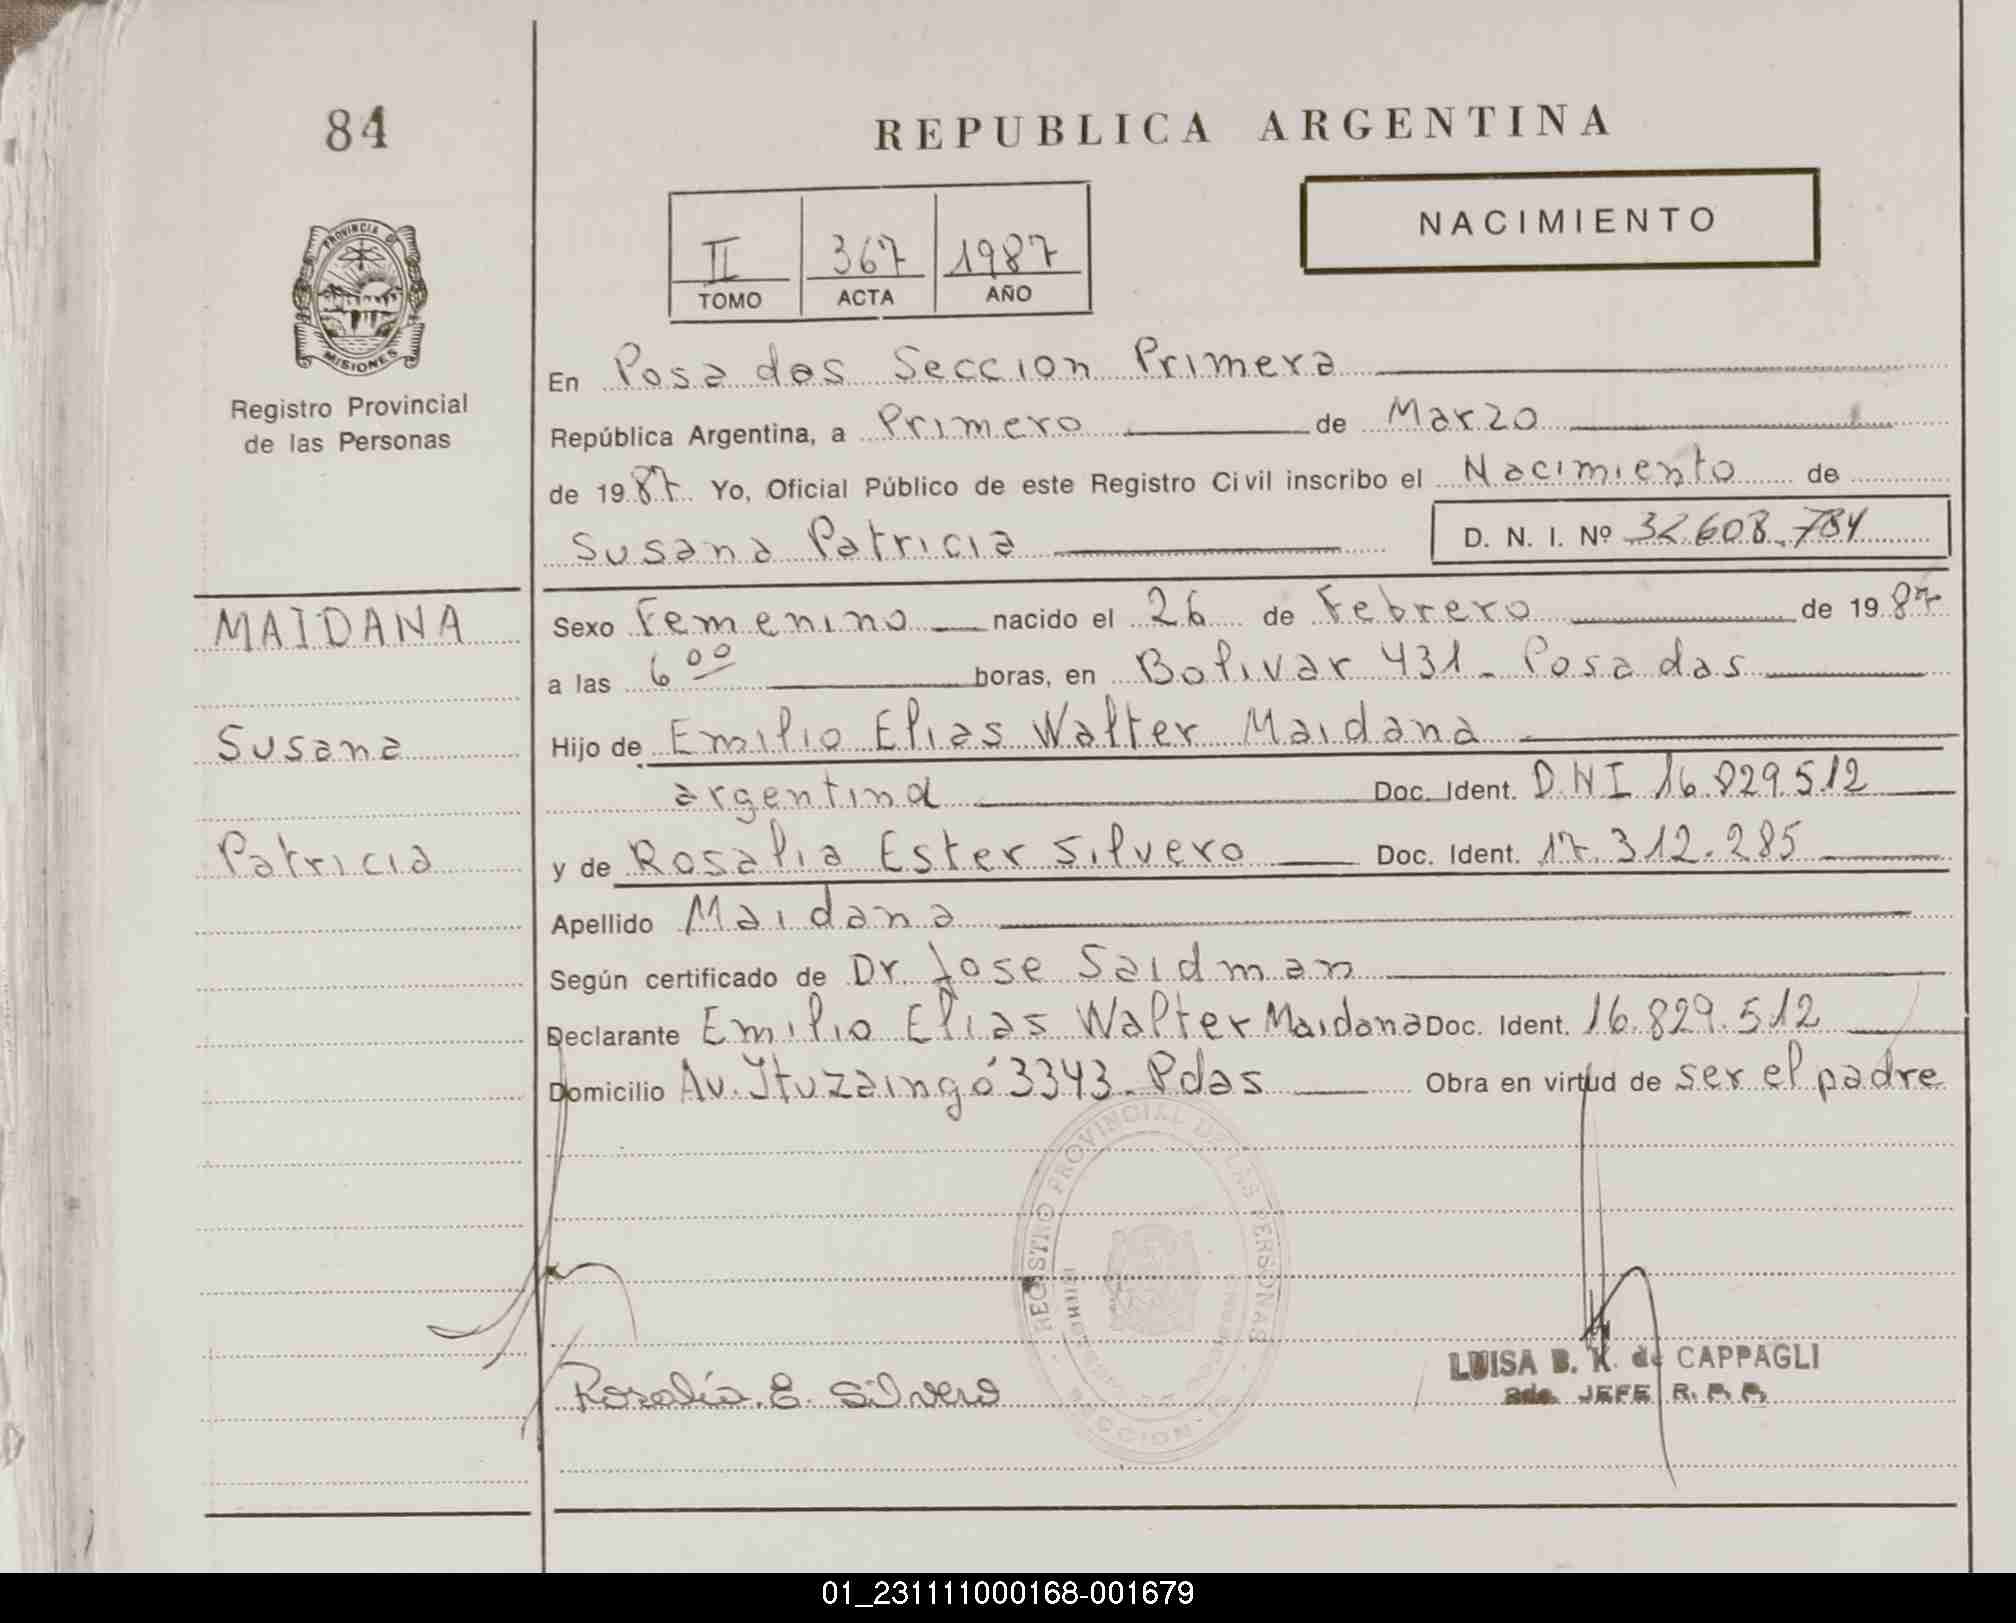 84
REPUBLICA ARGENTINA
NACIMIENTO
II 367 1987
TOMO ACTA AÑO
PROVINCIA DE
MISIONES
Registro Provincial
de las Personas
En Posadas Seccion Primera
República Argentina, a Primero de Marzo
de 1987 Yo, Oficial Público de este Registro Civil inscribo el Nacimiento de
Susana Patricia D. N. I. Nº 32.608.784
MAIDANA
Susana
Patricia
Sexo Femenino nacido el 26 de Febrero de 1987
a las 6 00 horas, en Bolivar 431 - Posadas
Hijo de Emilio Elias Walter Maidana
argentina Doc. Ident. D.N.I 16.829.512
y de Rosalia Ester Silvero Doc. Ident. 17.312.285
Apellido Maidana
Según certificado de Dr. Jose Saidman
Declarante Emilio Elias Walter Maidana Doc. Ident. 16.829.512
Domicilio Av. Ituzaingó 3343 - Pdas Obra en virtud de ser el padre
REGISTRO PROVINCIAL DE LAS PERSONAS
Rosalía. E. Silvero
LUISA B. K. de CAPPAGLI
2da. JEFE R. P. P.
01_231111000168-001679